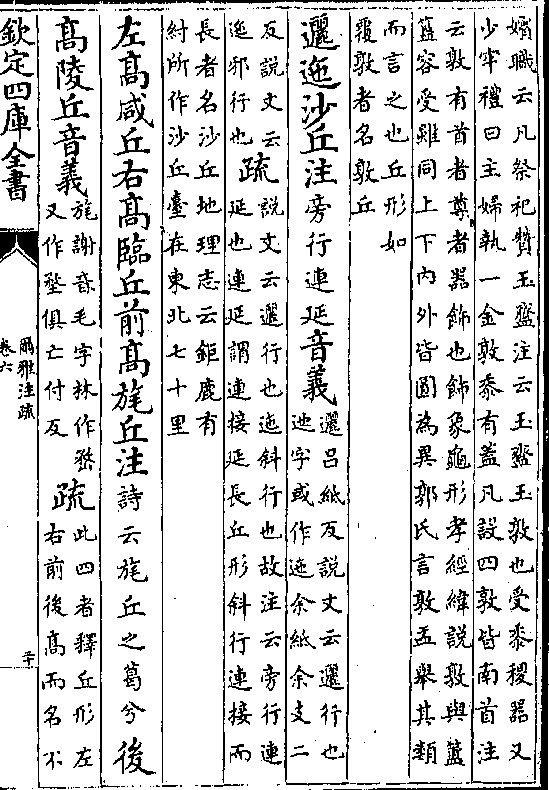 嬪職云凡祭祀贊玉齍注云玉齍玉敦也受黍稷器又
少牢禮曰主婦執一金敦黍有蓋凡設四敦皆南首注
云敦有首者尊者器飾也飾象龜形孝經緯說敦與簠
簋容受雖同上下內外皆圓為異郭氏言敦盂舉其類
而言之也丘形如
覆敦者名敦丘
邐迤沙丘注旁行連延音義邐呂紙反說文云邐行也
迆字或作迤余紙余支二
反說文云
迤邪行也疏說文云邐行也迤斜行也故注云旁行連
延也連延謂連接延長丘形斜行連接而
長者名沙丘地理志云鉅鹿有
紂所作沙丘臺在東北七十里
左高咸丘右高臨丘前高旄丘注詩云旄丘之葛兮後
高陵丘音義旄謝音毛字林作堥
又作嵍俱亡付反疏此四者釋丘形左
右前後高而名不
欽定四庫全書
爾雅注疏
卷六
二十